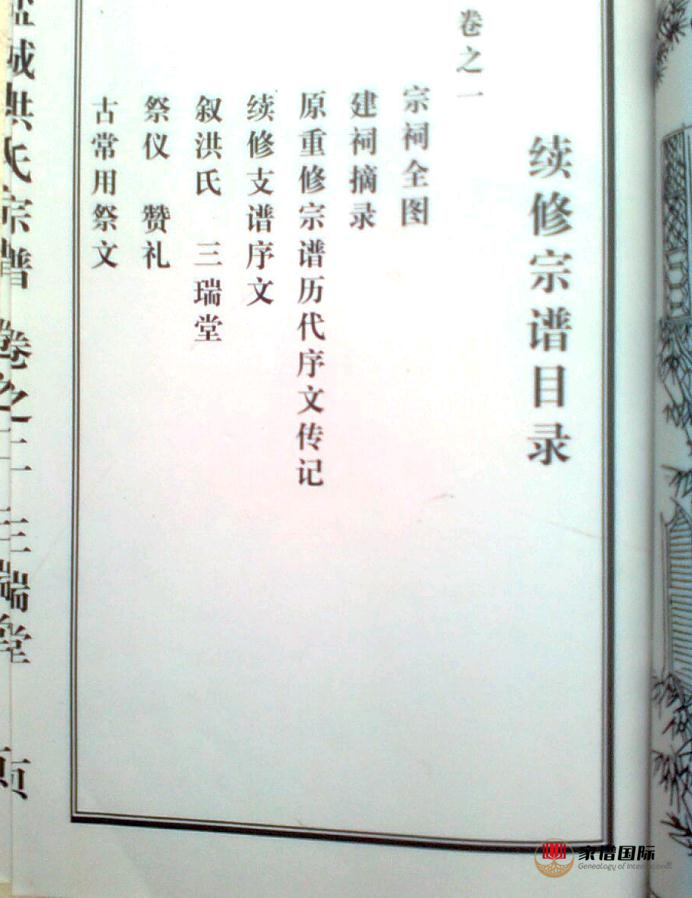 续修宗谱目录
卷之一
宗祠全图
建祠摘录
原重修宗谱历代序文传记
续修支谱序文
叙洪氏 三瑞堂
祭仪 赞礼
古常用祭文
盐城洪氏宗谱 卷之一 三瑞堂 页
家谱国际
Genealogy of International